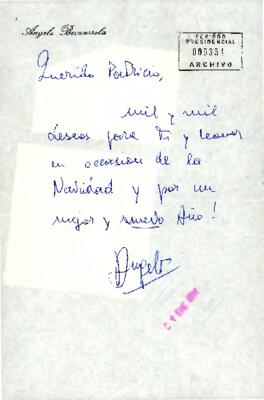 Angelo Bernassola
PERIODO
PRESIDENCIAL
ARCHIVO
Querido Patricio,
mil y mil
deseos para ti y Leonor
en occasion de la
Navidad y por un
mejor y nuevo Año!
Angelo